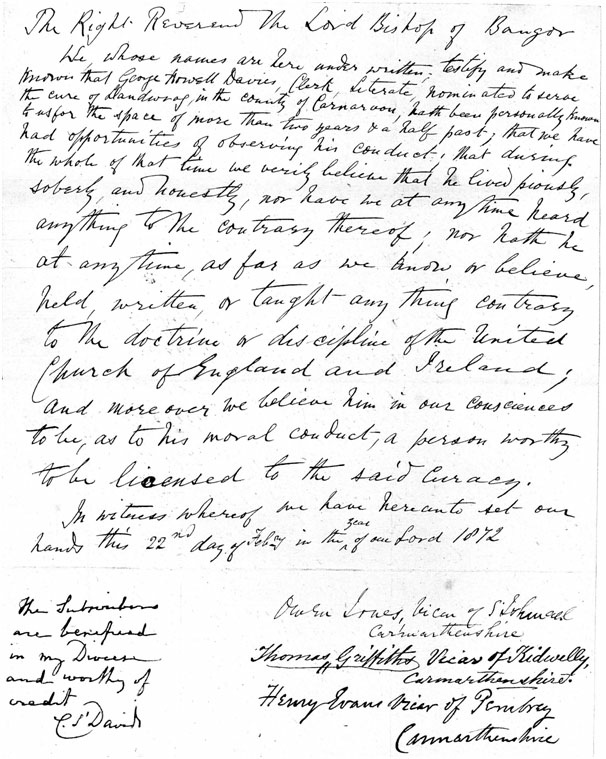 The Right Reverend The Lord Bishop of Bangor
We, whose names are here under written, testify and make
known that George Howell Davies, Clerk, Literate, nominated to serve
the cure of Llandwrog, in the county of Carnarvon, hath been personally known
to us for the space of more than two years & a half past; that we have
had opportunities of observing his conduct; that during
the whole of that time we verily believe that he lived piously,
soberly, and honestly, nor have we at any time heard
anything to the contrary thereof; nor hath he
at any time, as far as we know or believe,
held, written, or taught any thing contrary
to the doctrine or discipline of the United
Church of England and Ireland;
and moreover we believe him in our consciences
to be, as to his moral conduct, a person worthy
to be licensed to the said Curacy.
In witness whereof we have hereunto set our
hands this 22nd day of Feby in the year of our Lord 1872
The Subscribers
are beneficed
in my Diocese
and worthy of
credit
C. St Davids
Owen Jones, Vicar of St Ishmael
Carmarthenshire
Thomas Griffiths Vicar of Kidwelly,
Carmarthenshire.
Henry Evans Vicar of Pembrey
Carmarthenshire